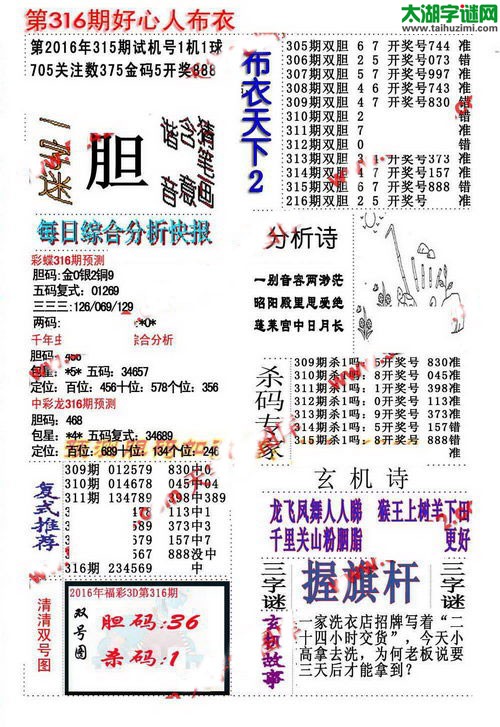 第316期好心人布衣
太湖字谜网
www.taihuzimi.com
第2016年315期试机号1机1球
705关注数375金码5开奖888
胆
每日综合分析快报
彩蝶316期预测
胆码:金0银2铜9
五码复式：01269
三三三:126/069/129
两码:
*0*
综合分析
胆码:
包星：*5* 五码：34657
定位：百位：456十位：578个位：356
中彩龙316期预测
胆码：468
包星：*4* 五码复式：34689
定位：百位：689十位：134个位：246
复式推荐
309期 012579 830中0
310期 014678 045中04
311期 134789 398中389
中
中
中
157中
567 888没中
316期 234569 中
清清双号图
2016年福彩3D第316期
双号图
胆码:36
杀码:1
布衣天下2
305期双胆 6 7 开奖号744 准
306期双胆 2 5 开奖号073 错
307期双胆 5 7 开奖号997 准
308期双胆 4 6 开奖号743 准
309期双胆 4 7 开奖号830 错
310期双胆 2
311期双胆 7
312期双胆 0 错
313期双胆 3 开奖号373 准
314期双胆 1 5 开奖号157 准
315期双胆 6 7 开奖号888 错
216期双胆 2 5 准
分析诗
一别音容两渺茫
昭阳殿里恩爱绝
蓬莱宫中日月长
杀码专家
309期杀1吗: 5开奖号 830准
310期杀1吗: 8开奖号 045准
311期杀1吗: 1开奖号 398准
312期杀1吗: 9开奖号 113准
313期杀1吗: 0开奖号 373准
314期杀1吗: 4开奖号 157准
315期杀1吗: 8开奖号 888错
准
玄机诗
龙飞凤舞人人睇 猴王上树羊下田
千里关山粉胭脂 更好
三字谜
握旗杆
三字谜
玄机故事
一家洗衣店招牌写着“二
十四小时交货”，今天小
高拿去洗，为何老板说要
三天后才能拿到？